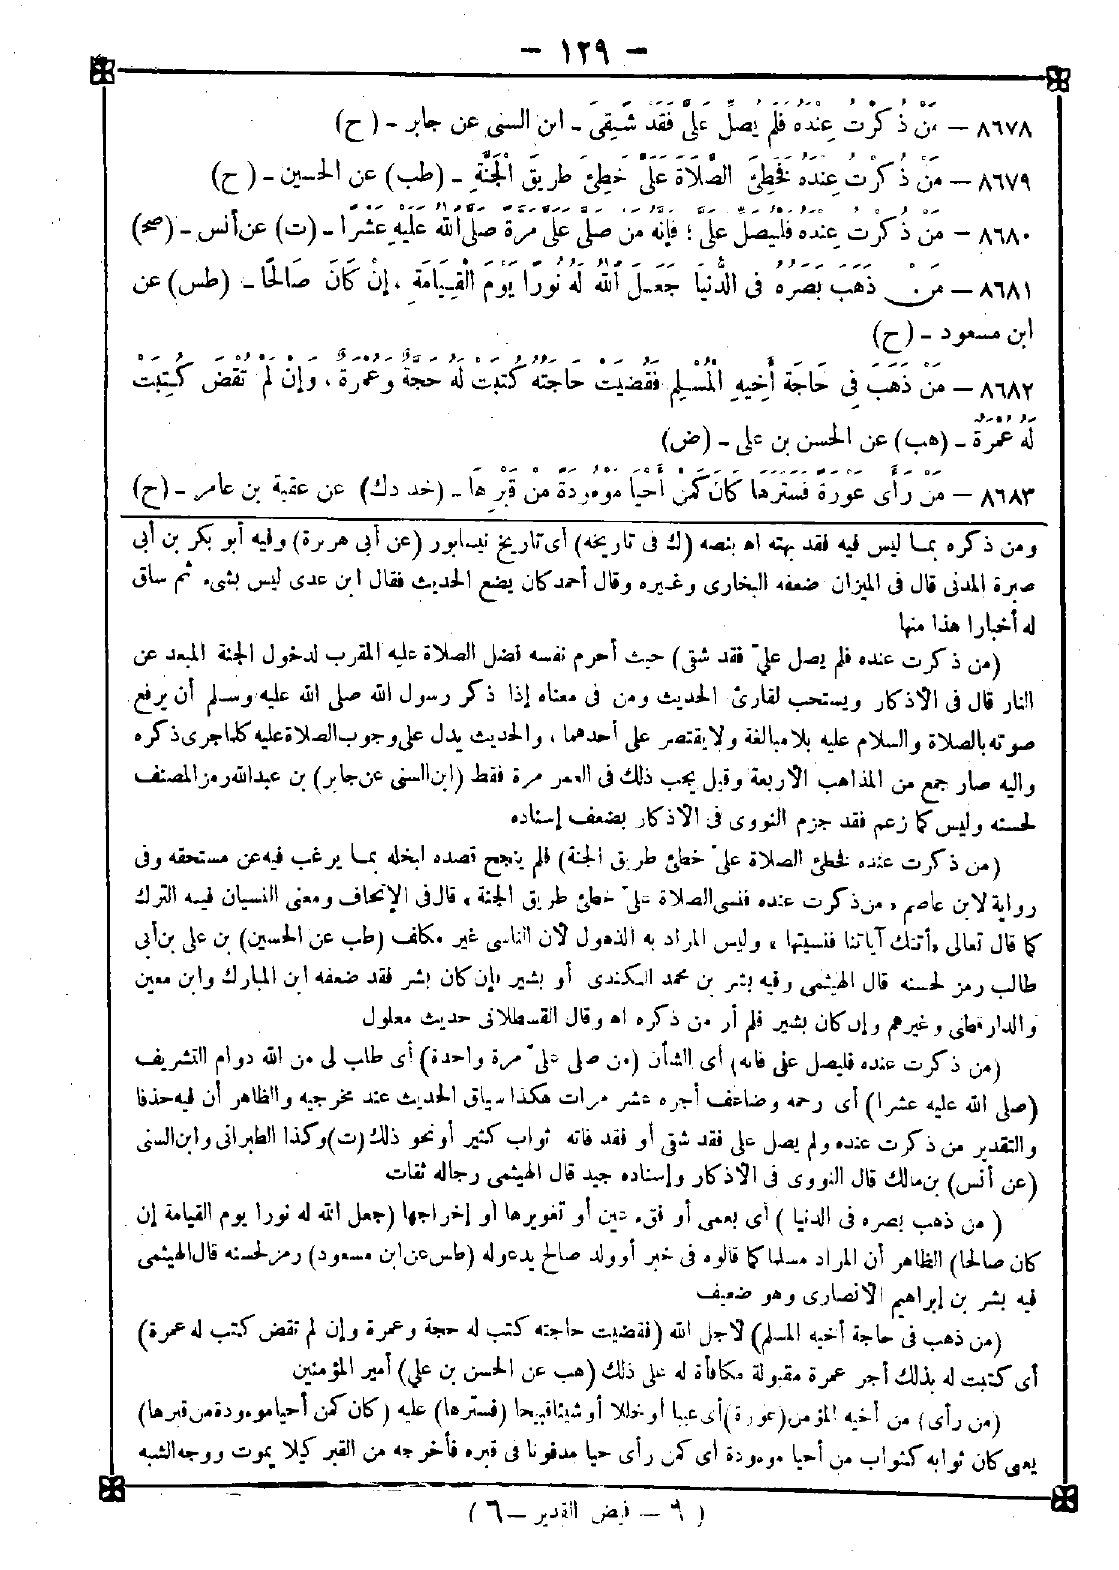 - ١٢٩ -
٨٦٧٨ - مَنْ ذُكِرْتُ عِنْدَهُ فَلَمْ يُصَلِّ عَلَىَّ فَقَدْ شَقِىَ - ابن السنى عن جابر - (ح)
٨٦٧٩ - مَنْ ذُكِرْتُ عِنْدَهُ فَخَطِئَ الصَّلَاةَ عَلَىَّ خَطِئَ طَرِيقَ الْجَنَّةِ - (طب) عن الحسين - (ح)
٨٦٨٠ - مَنْ ذُكِرْتُ عِنْدَهُ فَلْيُصَلِّ عَلَىَّ ؛ فَإِنَّهُ مَنْ صَلَّى عَلَىَّ مَرَّةً صَلَّى اللهُ عَلَيْهِ عَشْرًا - (ت) عن أنس - (صح)
٨٦٨١ - مَنْ ذَهَبَ بَصَرُهُ فى الدُّنْيَا جَعَلَ اللهُ لَهُ نُورًا يَوْمَ الْقِيَامَةِ ، إِنْ كَانَ صَالِحًا - (طس) عن
ابن مسعود - (ح)
٨٦٨٢ - مَنْ ذَهَبَ فِى حَاجَةِ أَخِيهِ الْمُسْلِمِ فَقُضِيَتْ حَاجَتُهُ كُتِبَتْ لَهُ حَجَّةٌ وَعُمْرَةٌ ، وَإِنْ لَمْ تُقْضَ كُتِبَتْ
لَهُ عُمْرَةٌ - (هب) عن الحسن بن على - (ض)
٨٦٨٣ - مَنْ رَأَى عَوْرَةً فَسَتَرَهَا كَانَ كَمَنْ أَحْيَا مَوْءُودَةً مِنْ قَبْرِهَا - (خد د ك) عن عقبة بن عامر - (ح)
ومن ذكره بما ليس فيه فقد بهته اه بنصه (ك فى تاريخه) أى تاريخ نيسابور (عن أبى هريرة) وفيه أبو بكر بن أبى
صبرة المدنى قال فى الميزان ضعفه البخارى وغيره وقال أحمد كان يضع الحديث فقال ابن عدى ليس بشىء ثم ساق
له أخبارا هذا منها
(من ذكرت عنده فلم يصل علىّ فقد شقى) حيث أحرم نفسه فضل الصلاة عليه المقرب لدخول الجنة المبعد عن
النار قال فى الأذكار ويستحب لقارئ الحديث ومن فى معناه إذا ذكر رسول الله صلى الله عليه وسلم أن يرفع
صوته بالصلاة والسلام عليه بلا مبالغة ولا يقتصر على أحدهما ، والحديث يدل على وجوب الصلاة عليه كلما جرى ذكره
واليه صار جمع من المذاهب الأربعة وقيل يجب ذلك فى العمر مرة فقط (ابن السنى عن جابر) بن عبدالله رمز المصنف
لحسنه وليس كما زعم فقد جزم النووى فى الأذكار بضعف إسناده
(من ذكرت عنده فخطئ الصلاة علىّ خطئ طريق الجنة) فلم ينجح قصده لبخله بما يرغب فيه عن مستحقه وفى
رواية لابن عاصم ، من ذكرت عنده فنسى الصلاة علىّ خطئ طريق الجنة ، قال فى الإتحاف ومعنى النسيان فيه الترك
كما قال تعالى ، أتتك آياتنا فنسيتها ، وليس المراد به الذهول لأن الناسى غير مكلف (طب عن الحسين) بن على بن أبى
طالب رمز لحسنه قال الهيثمى وفيه بشر بن محمد الكندى أو بشير فإن كان بشر فقد ضعفه ابن المبارك وابن معين
والدارقطنى وغيرهم وإن كان بشير فلم أر من ذكره اه وقال القسطلانى حديث معلول
(من ذكرت عنده فليصل على فانه) أى الشأن (من صلى علىّ مرة واحدة) أى طلب لى من الله دوام التشريف
(صلى الله عليه عشرا) أى رحمه وضاعف أجره عشر مرات هكذا سياق الحديث عند مخرجيه والظاهر أن فيه حذفا
والتقدير من ذكرت عنده ولم يصل على فقد شقى أو فقد فاته ثواب كثير أو نحو ذلك (ت) وكذا الطبرانى وابن السنى
(عن أنس) بن مالك قال النووى فى الأذكار وإسناده جيد قال الهيثمى رجاله ثقات
( من ذهب بصره فى الدنيا ) أى بعمى أو فقء عين أو تغويرها أو إخراجها (جعل الله له نورا يوم القيامة إن
كان صالحا) الظاهر أن المراد مسلما كما قالوه فى خبر أو ولد صالح يدعو له (طس عن ابن مسعود) رمز لحسنه قال الهيثمى
فيه بشر بن إبراهيم الأنصارى وهو ضعيف
(من ذهب فى حاجة أخيه المسلم) لأجل الله (فقضيت حاجته كتب له حجة وعمرة وإن لم تقض كتب له عمرة)
أى كتبت له بذلك أجر عمرة مقبولة مكافأة له على ذلك (هب عن الحسن بن على) أمير المؤمنين
(من رأى) من أخيه المؤمن (عورة) أى عيبا أو خللا أو شيئا قبيحا (فسترها) عليه (كان كمن أحيا موءودة من قبرها)
يعنى كان ثوابه كثواب من أحيا موءودة أى كمن رأى حيا مدفونا فى قبره فأخرجه من القبر كيلا يموت ووجه الشبه
( ٩ - فيض القدير - ٦ )